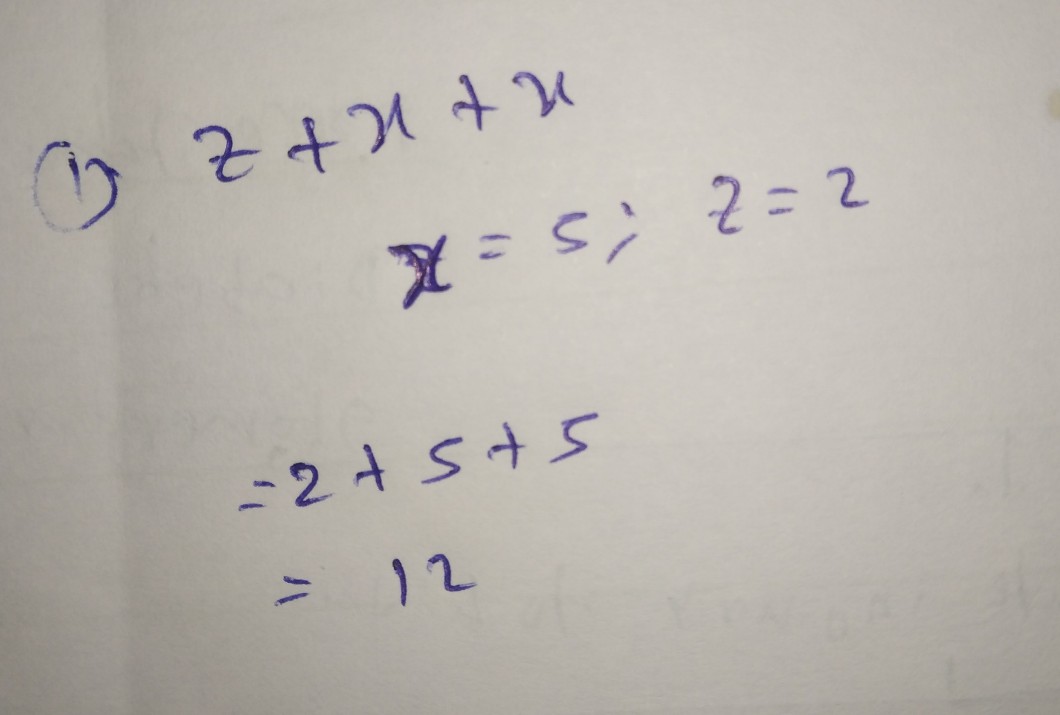 ① z + x + x
x = 5; z = 2
= 2 + 5 + 5
= 12